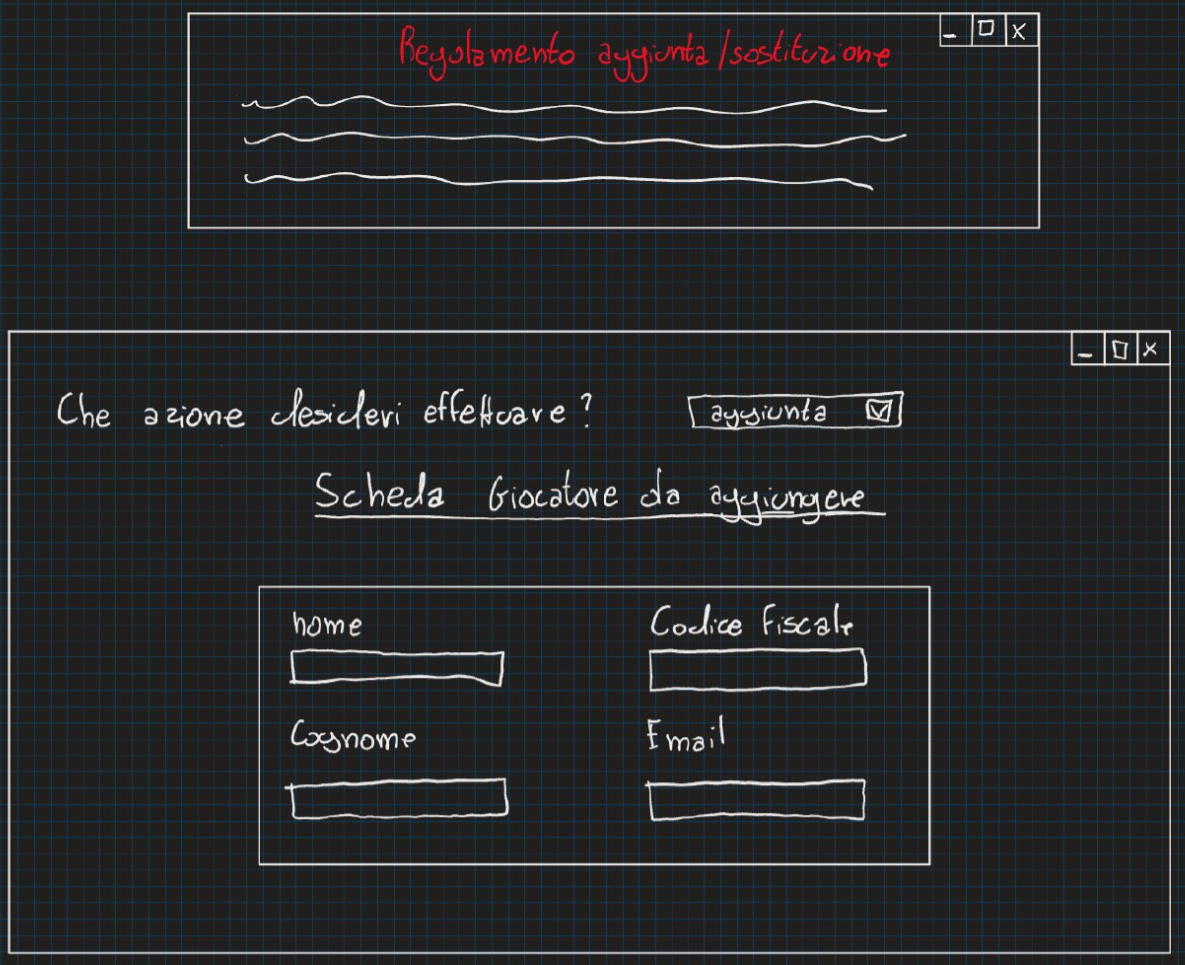 Regolamento aggiunta/sostituzione
Che azione desideri effettuare? aggiunta
Scheda Giocatore da aggiungere
nome Codice Fiscale
Cognome Email